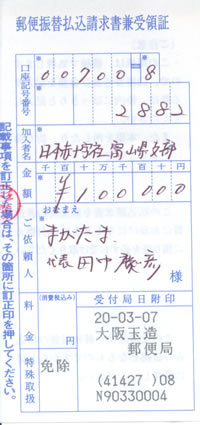 郵便振替払込請求書兼受領証
口座記号番号
00700 8
2882
加入者名
日本赤十字社富山県支部
金額
千百十万千百十円
¥100000
ご依頼人
おなまえ
まかたま
代表 田中
様
料金
(消費税込み)
円
特殊取扱
免除
受付局日附印
20-03-07
大阪玉造
郵便局
(41427)08
N90330004
記載事項を訂正した場合は、その箇所に訂正印を押してください。